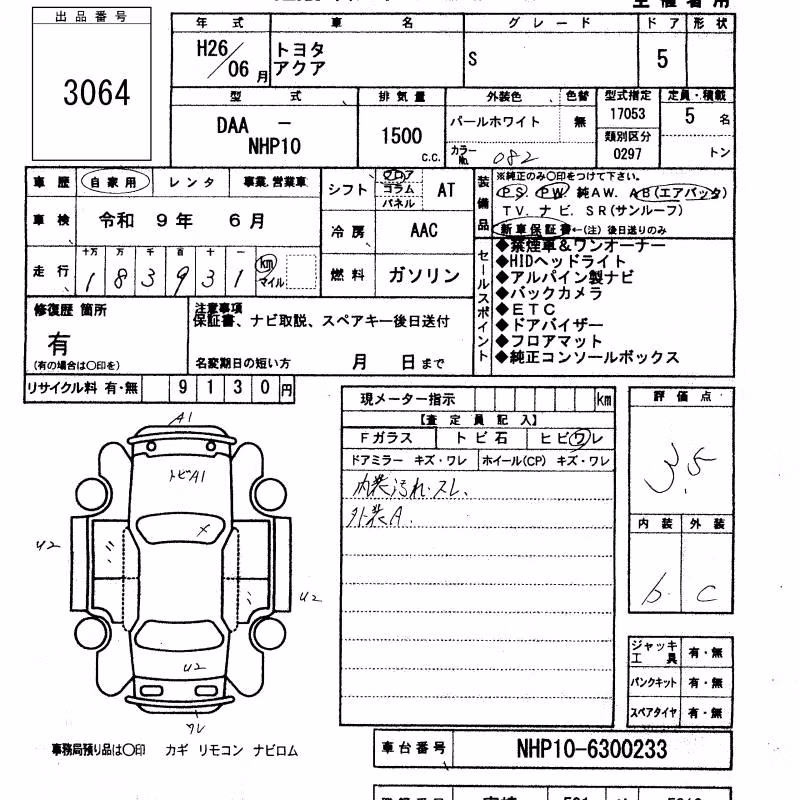 出品番号
3064
年式 車名 グレード ドア 形状
H26/06月 トヨタ アクア S 5
型式 排気量 外装色 色替 型式指定 定員・積載
DAA - NHP10 1500 c.c. パールホワイト 無 17053 5 名
カラーNo. 082 類別区分 0297 トン
車歴 自家用 レンタ 事業.営業車
シフト フロア コラム パネル AT
装備品 ※純正のみ○印をつけて下さい。
PS PW 純AW. AB(エアバッグ)
TV. ナビ. SR(サンルーフ)
新車保証書←(注) 後日送りのみ
車検 令和 9年 6月
冷房 AAC
走行 十万 万 千 百 十 一
183931 km マイル
燃料 ガソリン
セールスポイント
◆禁煙車&ワンオーナー
◆HIDヘッドライト
◆アルパイン製ナビ
◆バックカメラ
◆ETC
◆ドアバイザー
◆フロアマット
◆純正コンソールボックス
修復歴 箇所
有
(有の場合は○印を)
注意事項
保証書、ナビ取説、スペアキー後日送付
名変期日の短い方 月 日まで
リサイクル料 有・無 9130円
現メーター指示 km
【査定員記入】
Fガラス トビ石 ヒビワレ
ドアミラー キズ・ワレ ホイール(CP) キズ・ワレ
内装汚れ・スレ.
外装A.
評価点
3.5
内装 外装
b c
A1
トビA1
X
U2
U2
U2
ワレ
ジャッキ工具 有・無
パンクキット 有・無
スペアタイヤ 有・無
事務局預り品は○印 カギ リモコン ナビロム
車台番号 NHP10-6300233